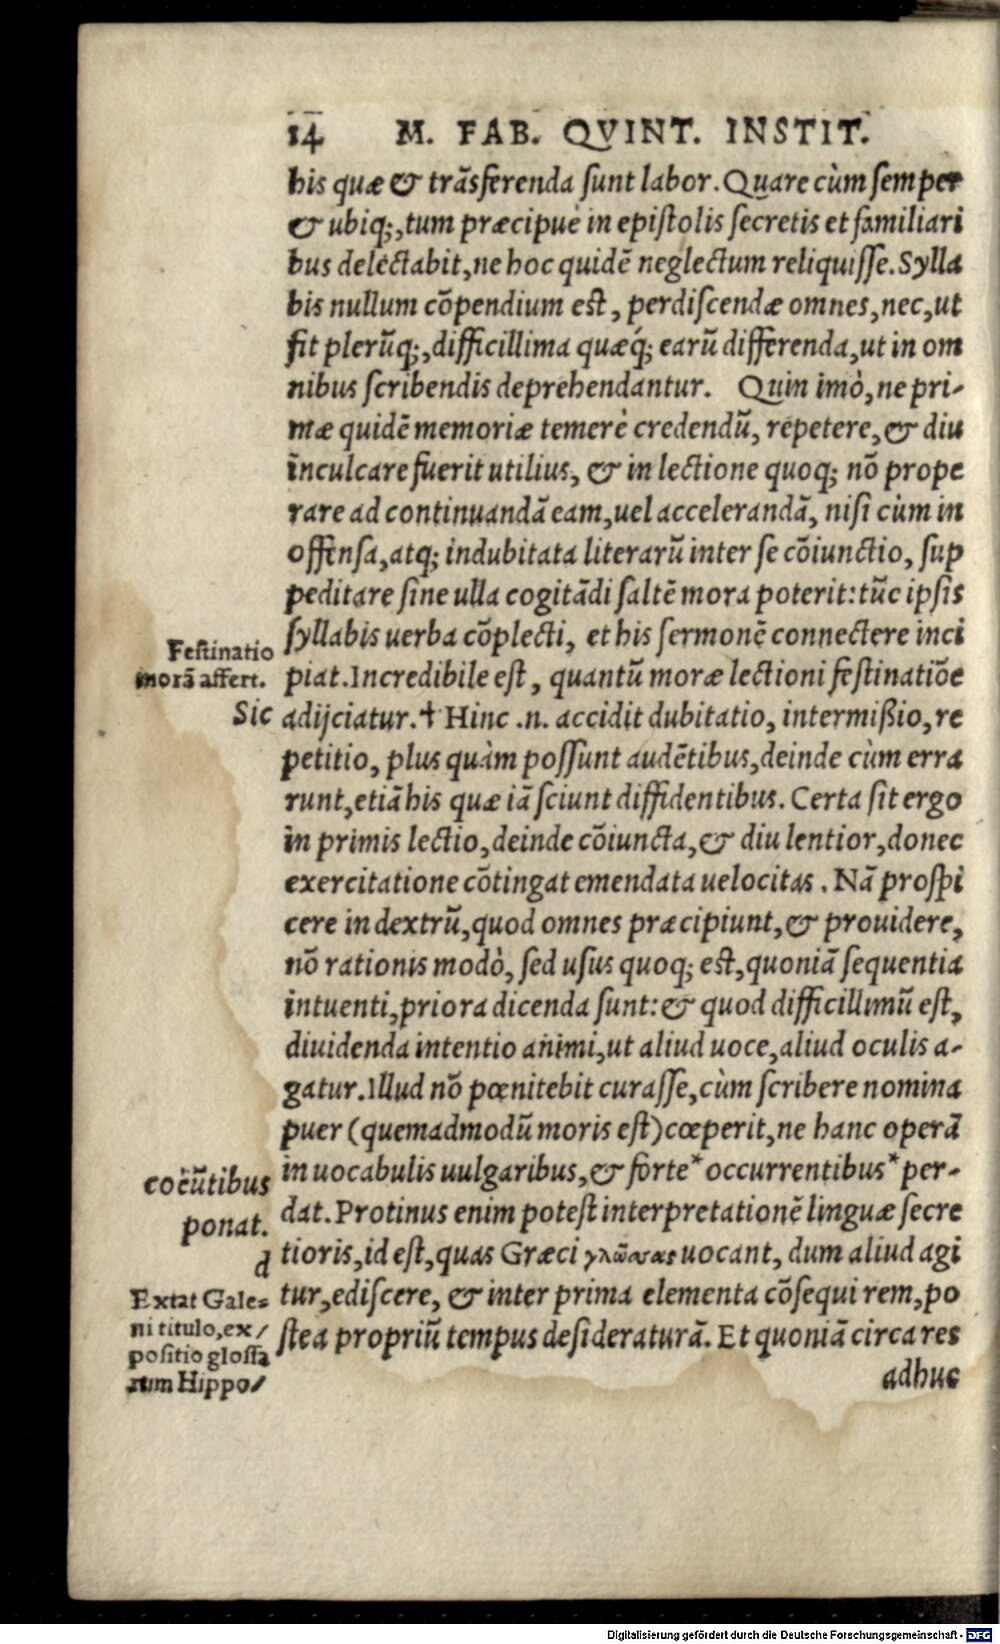 14 M. FAB. QVINT. INSTIT.
his quæ & trãsferenda sunt labor. Quare cùm semper
& ubiq;, tum præcipuè in epistolis secretis et familiari
bus delectabit, ne hoc quidẽ neglectum reliquisse. Sylla
bis nullum cõpendium est, perdiscendæ omnes, nec, ut
fit plerũq;, difficillima quæq́; earũ differenda, ut in om
nibus scribendis deprehendantur. Quin imò, ne pri-
mæ quidẽ memoriæ temerè credendũ, repetere, & diu
inculcare fuerit utilius, & in lectione quoq; nõ prope
rare ad continuandã eam, uel accelerandã, nisi cùm in
offensa, atq; indubitata literarũ inter se cõiunctio, sup
peditare sine ulla cogitãdi saltẽ mora poterit: tũc ipsis
syllabis uerba cõplecti, et his sermonẽ connectere inci
Festinatio
morã affert.
piat. Incredibile est, quantũ moræ lectioni festinatiõe
Sic
adijciatur.† Hinc .n. accidit dubitatio, intermißio, re
petitio, plus quàm possunt audẽtibus, deinde cùm erra
runt, etiã his quæ iã sciunt diffidentibus. Certa sit ergo
in primis lectio, deinde cõiuncta, & diu lentior, donec
exercitatione cõtingat emendata uelocitas. Nã prospi
cere in dextrũ, quod omnes præcipiunt, & prouidere,
nõ rationis modò, sed usus quoq; est, quoniã sequentia
intuenti, priora dicenda sunt: & quod difficillimũ est,
diuidenda intentio animi, ut aliud uoce, aliud oculis a-
gatur. Illud nõ pœnitebit curasse, cùm scribere nomina
puer (quemadmodũ moris est) cœperit, ne hanc operã
in uocabulis uulgaribus, & forte* occurrentibus* per-
coëũtibus
ponat.
dat. Protinus enim potest interpretationẽ linguæ secre
d
tioris, id est, quas Græci γλώσσας uocant, dum aliud agi
Extat Gale=
ni titulo, ex/
positio glossa
rum Hippo/
tur, ediscere, & inter prima elementa cõsequi rem, po
stea propriũ tempus desideraturã. Et quoniã circa res
adhuc
Digitalisierung gefördert durch die Deutsche Forschungsgemeinschaft - DFG